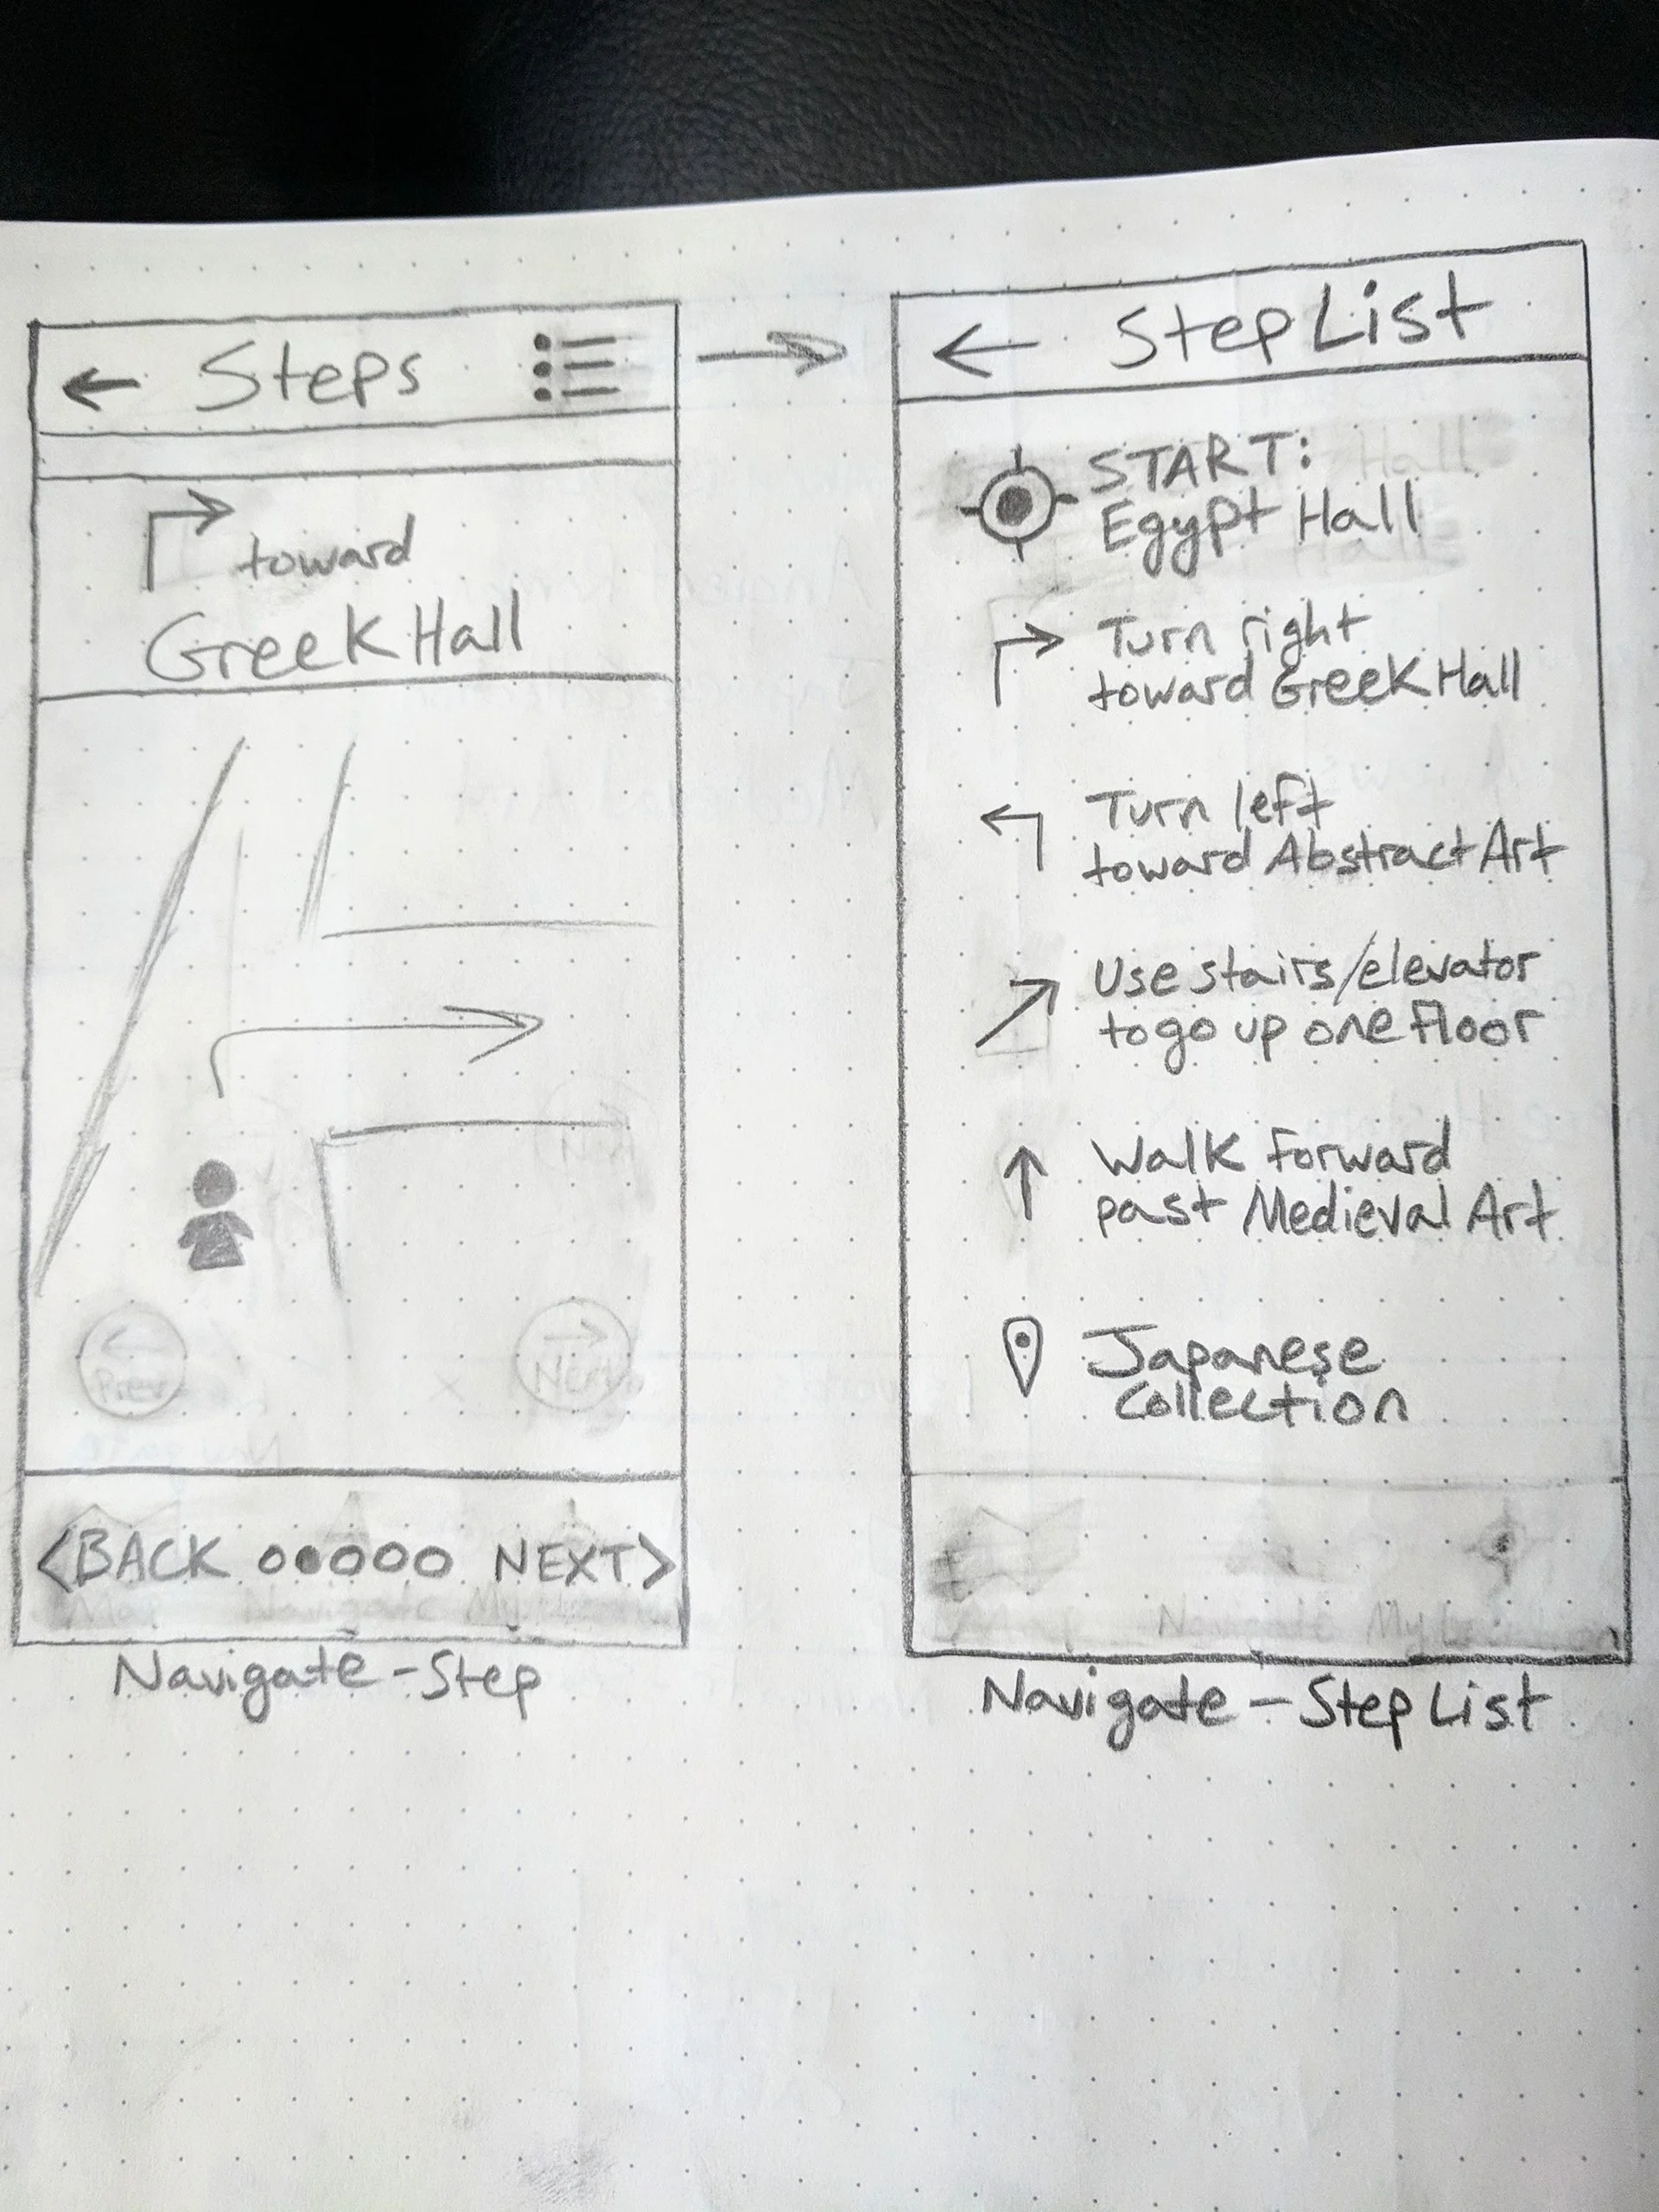 Steps
toward
Greek Hall
Prev
Next
<BACK
NEXT>
Map Navigate My
Navigate - Step
Step List
START:
Hall
Egypt Hall
Turn right
toward Greek Hall
Turn left
toward Abstract Art
Use stairs/elevator
to go up one floor
Walk forward
past Medieval Art
Japanese
Collection
Map Navigate My Location
Navigate - Step List